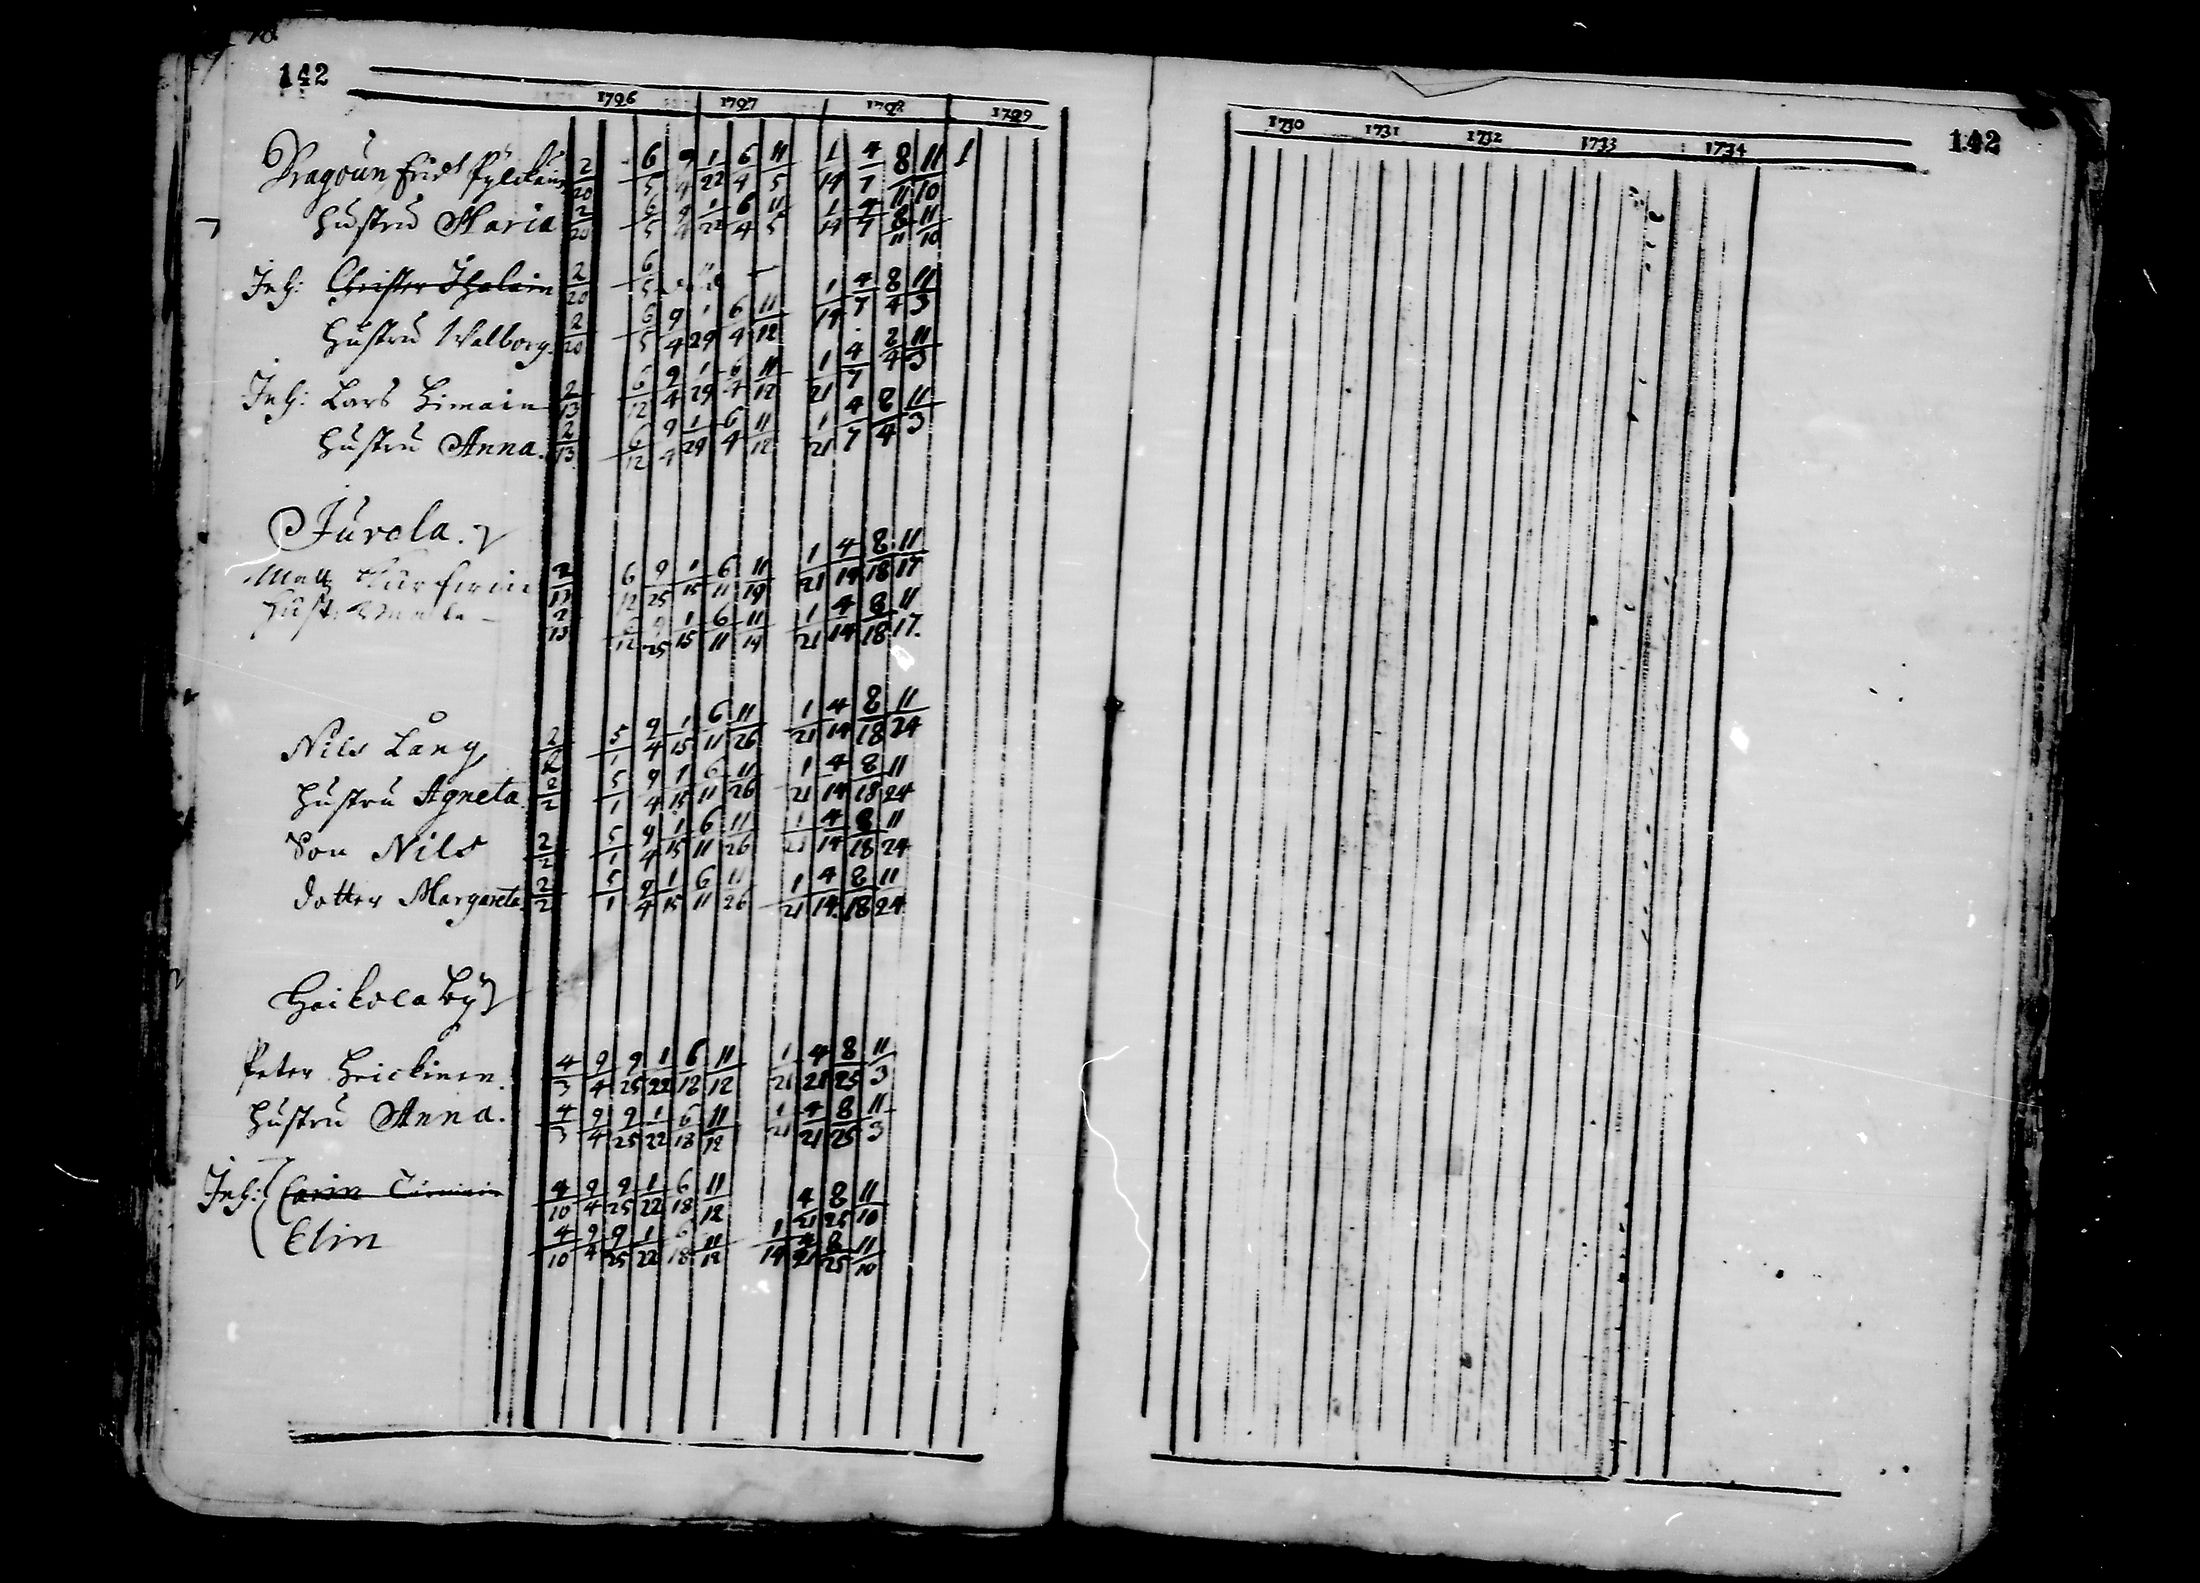 142
1726 1727 1728 1729
Dragoun Erich Pylckäin 2/20 6/5 9/4 1/22 6/4 11/5 1/14 4/7 8/11 11/10 1
hustru Maria 2/20 6/5 9/4 1/22 6/4 11/5 1/14 4/7 8/11 11/10
Inh: Christer Thalain 2/20 6/5
hustru Walborg 2/20 6/5 9/4 1/29 6/4 11/12 1/14 4/7 8/4 11/3
Inh: Lars Himain 2/13 6/12 9/4 1/29 6/4 11/12 1/21 4/7 2/4 11/3
hustru Anna 2/13 6/12 9/4 1/29 6/4 11/12 1/21 4/7 8/4 11/3
Jurola
Matz 2/13 6/12 9/25 1/15 6/11 11/19 1/21 4/14 8/18 11/17
hust: 2/13 6/12 9/25 1/15 6/11 11/19 1/21 4/14 8/18 11/17
Nils Lång 2/2 5/1 9/4 1/15 6/11 11/26 1/21 4/14 8/18 11/24
hustru Agneta 2/2 5/1 9/4 1/15 6/11 11/26 1/21 4/14 8/18 11/24
Son Nils 2/2 5/1 9/4 1/15 6/11 11/26 1/21 4/14 8/18 11/24
dotter Margareta 2/2 5/1 9/4 1/15 6/11 11/26 1/21 4/14 8/18 11/24
Heikola by
Peter Heickinen 4/3 9/4 9/25 1/22 6/18 11/12 1/21 4/21 8/25 11/3
hustru Anna 4/3 9/4 9/25 1/22 6/18 11/12 1/21 4/21 8/25 11/3
Inh: Carin 4/10 9/4 9/25 1/22 6/18 11/12 4/21 8/25 11/10
Elin 4/10 9/4 9/25 1/22 6/18 11/12 1/14 4/21 8/25 11/10
142
1730 1731 1732 1733 1734